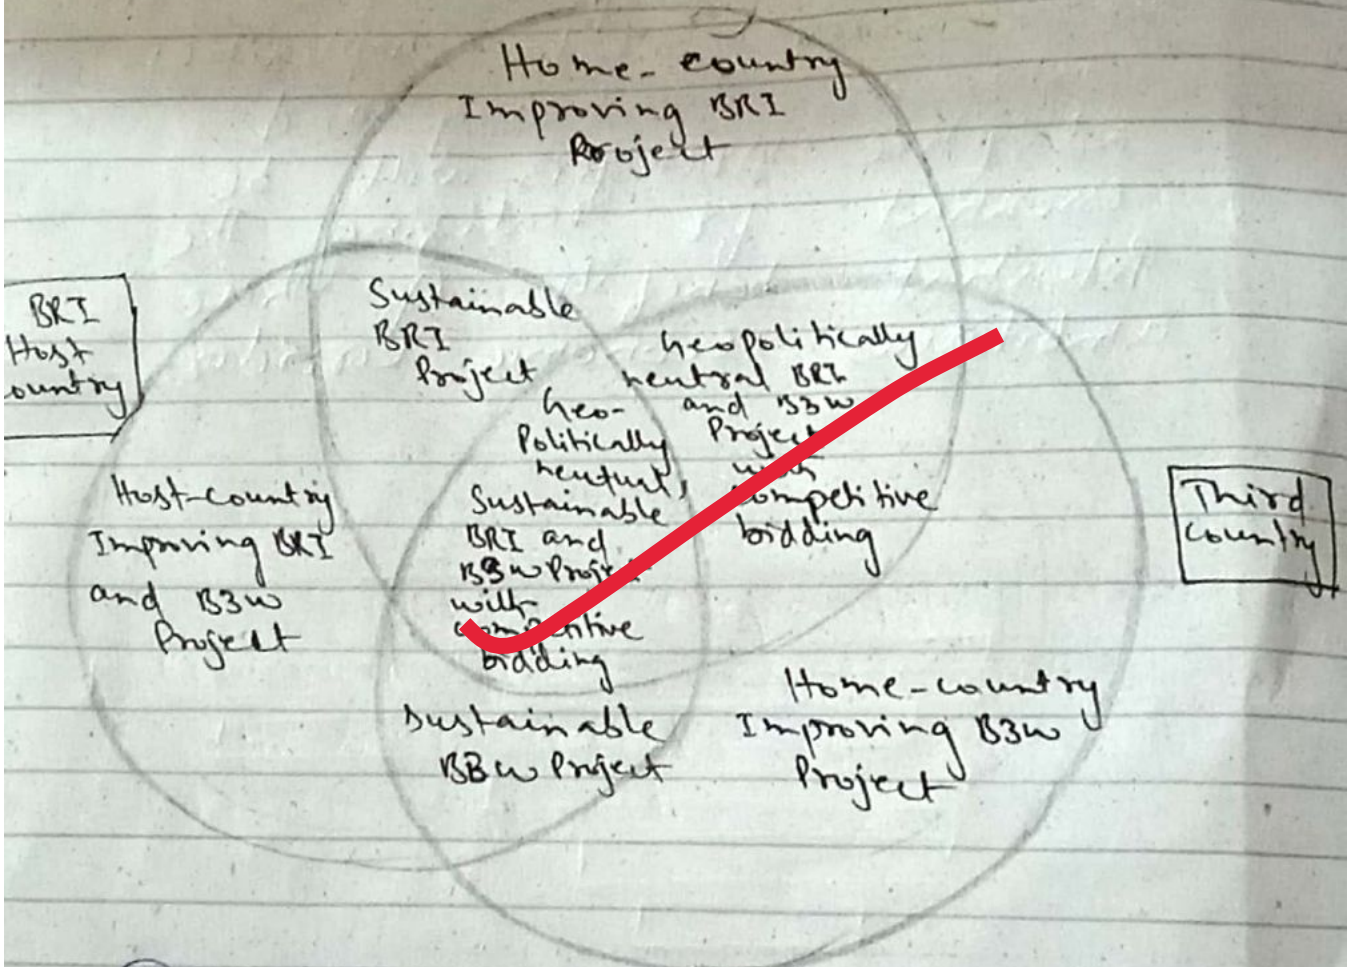 Home-country
Improving BRI
Project
BRI
Host
ountry
Sustainable
BRI
Project
Geopolitically
neutral BRI
and B3W
Project
with
competitive
bidding
Geo-
Politically
neutual,
Sustainable
BRI and
B3W Project
with
competitive
bidding
Host-country
Improving BRI
and B3W
Project
Third
Country
Sustainable
BBW Project
Home-country
Improving B3W
Project